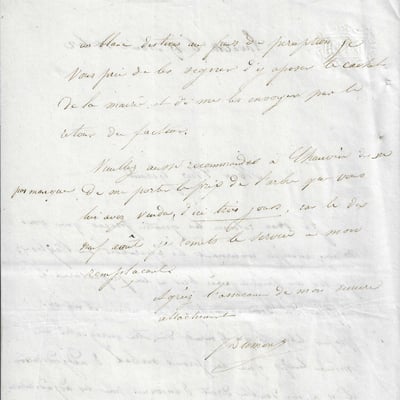 en blanc destinés au frais de perception je
vous prie de les signer d'y aposer le cachet
de la mairie et de me les envoyer par le
retour du facteur.
Veuillez aussi recommander à Chauvin de ne
pas manquer De me porter le prix de l'arbre que vous
lui avez vendu, d'ici trois jours, car le dix
neuf août je remets le service à mon
remplaçant
Agréez l'assurance de mon sincère
attachement